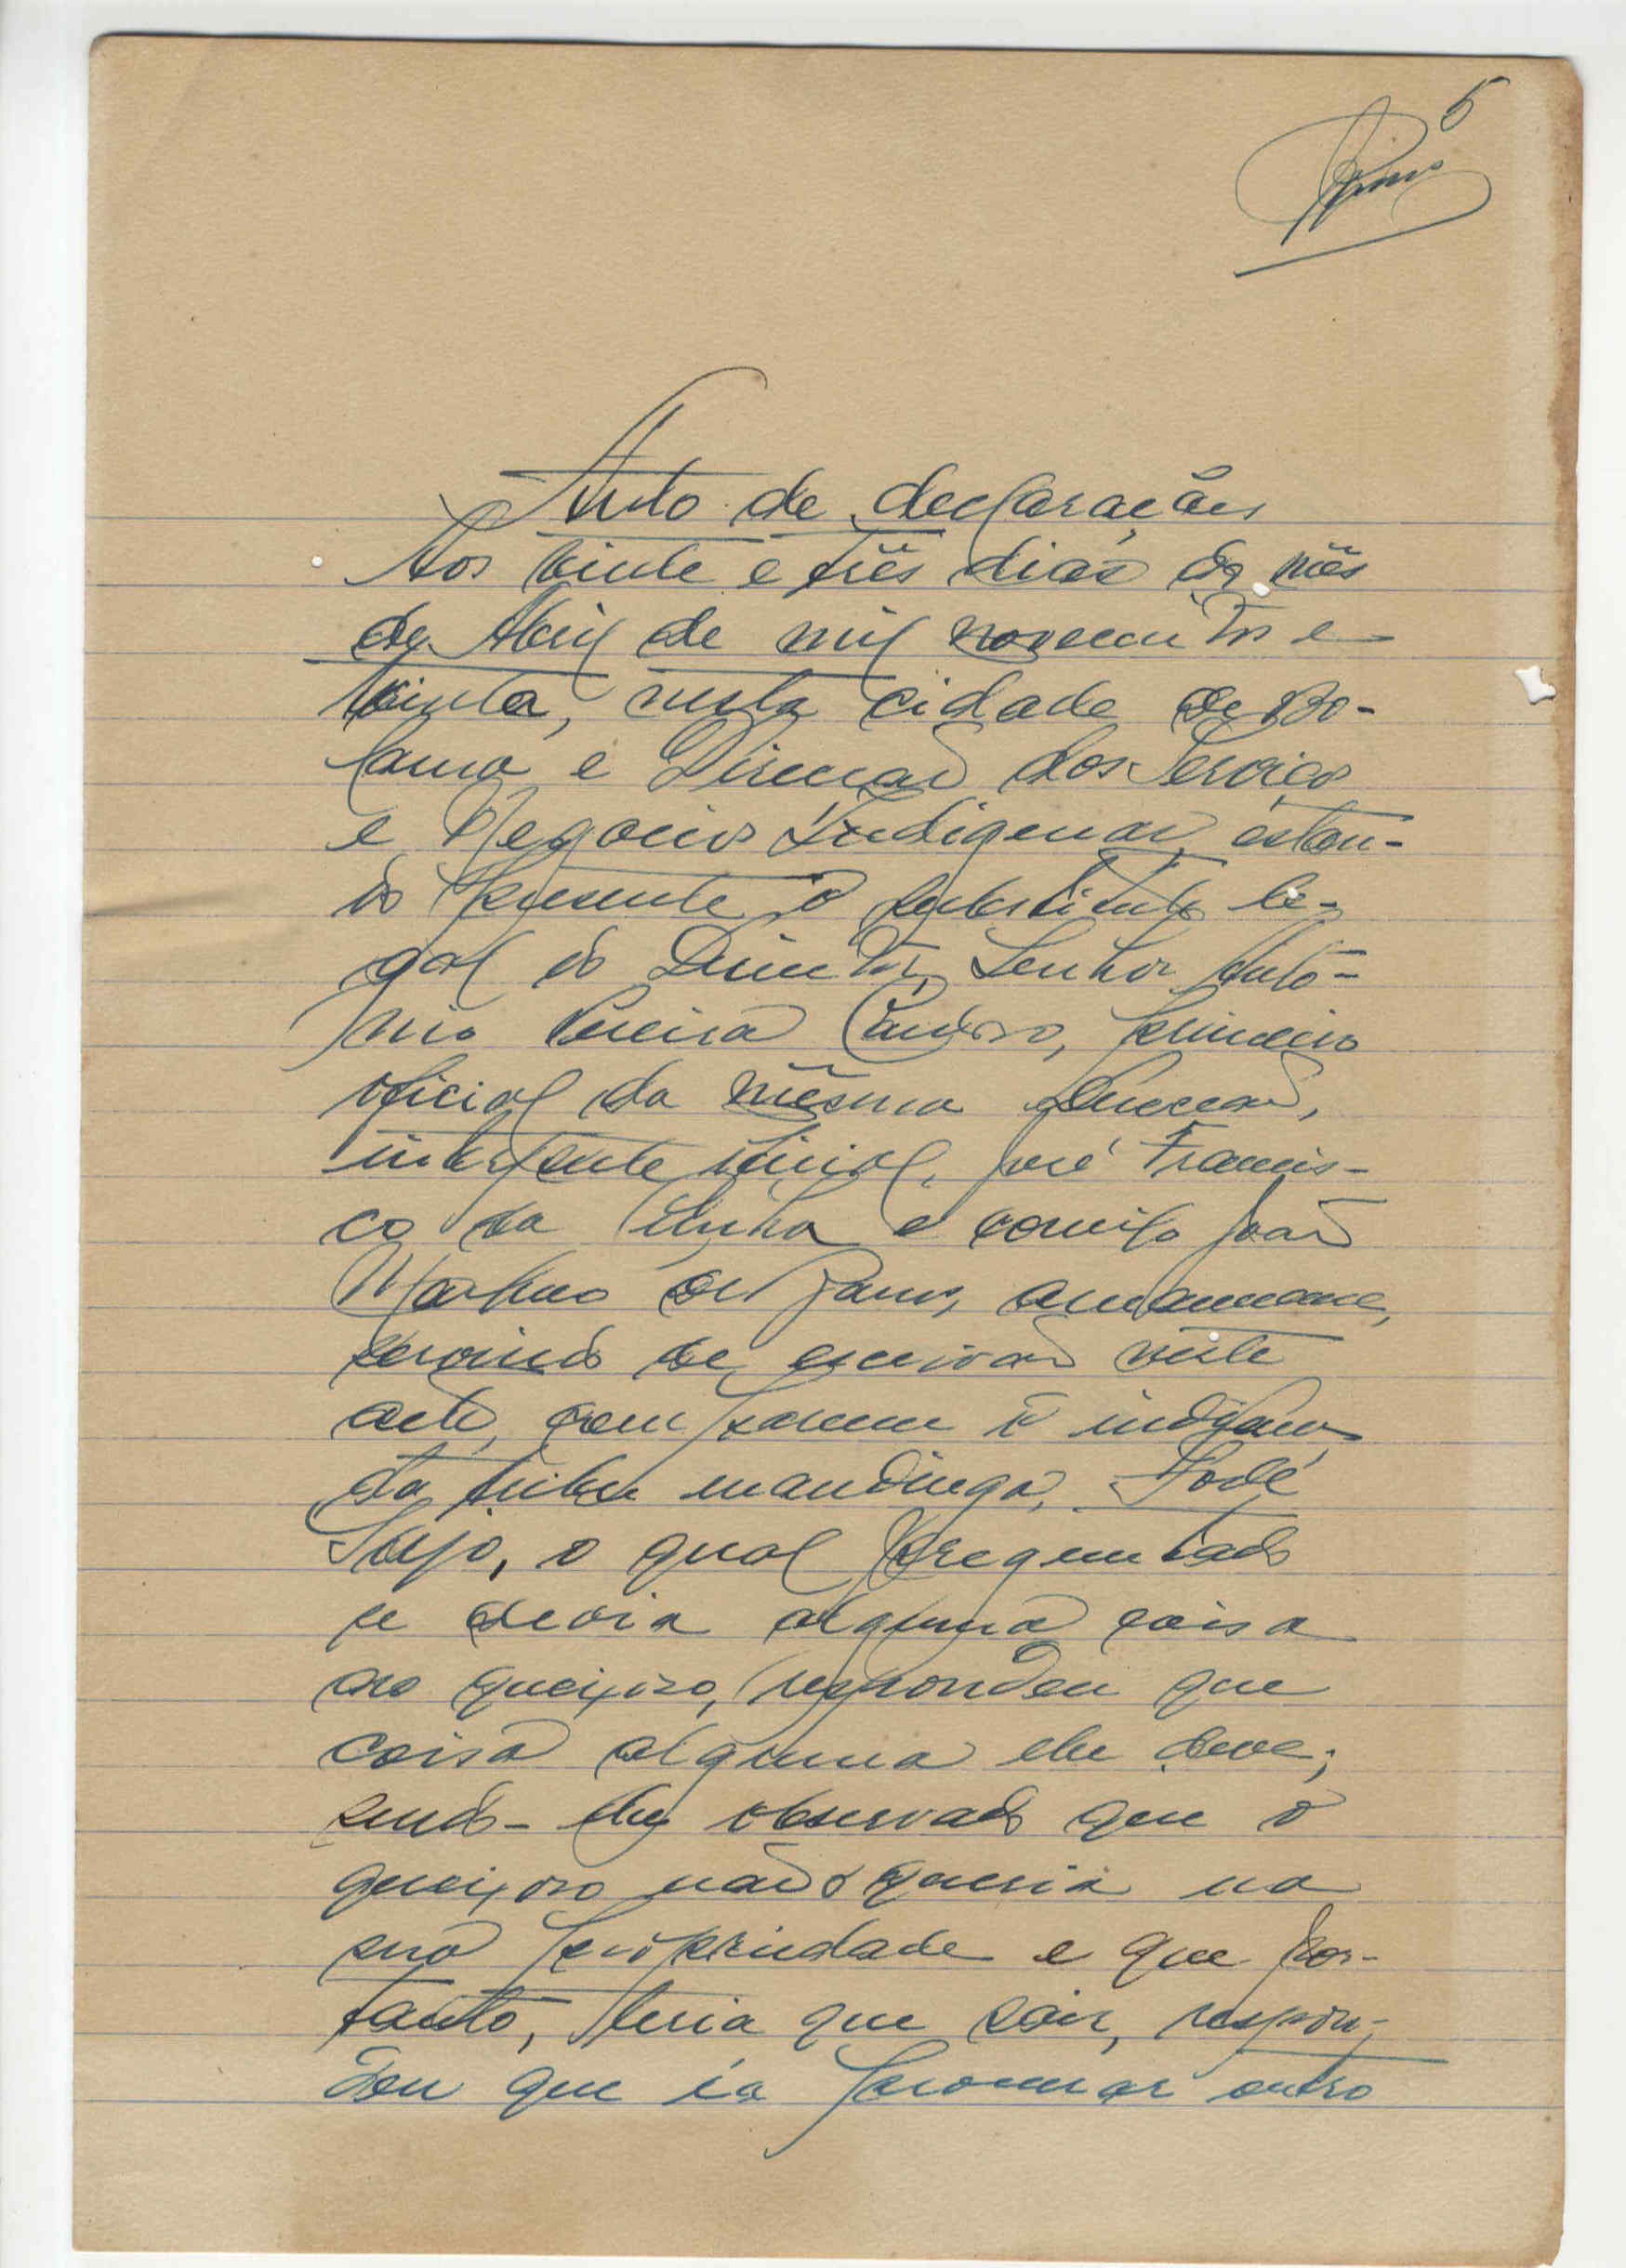 5
Auto de declarações
Aos vinte e três dias do mês
de Abril de mil novecentos e
trinta, nesta cidade de Bo-
lama e Direcção dos Serviços
e Negocios Indigenas, estan-
do presente o substituto le-
gal do Director, Senhor Antó-
nio Pereira Cardoso, primeiro
oficial da mêsma Direcção,
intérprete oficial, José Francis-
co da Cunha e comigo João
de Barros, amanuense,
servindo de escrivão neste
acto, compareceu o indígena
da tribu mandinga, Fodé
o qual preguntado
se devia alguma coisa
ao queixoso, respondeu que
coisa alguma lhe deve;
sendo-lhe observado que o
queixoso não o queria na
sua propriedade e que por-
tanto, teria que sair, respon-
deu que ia procurar outro